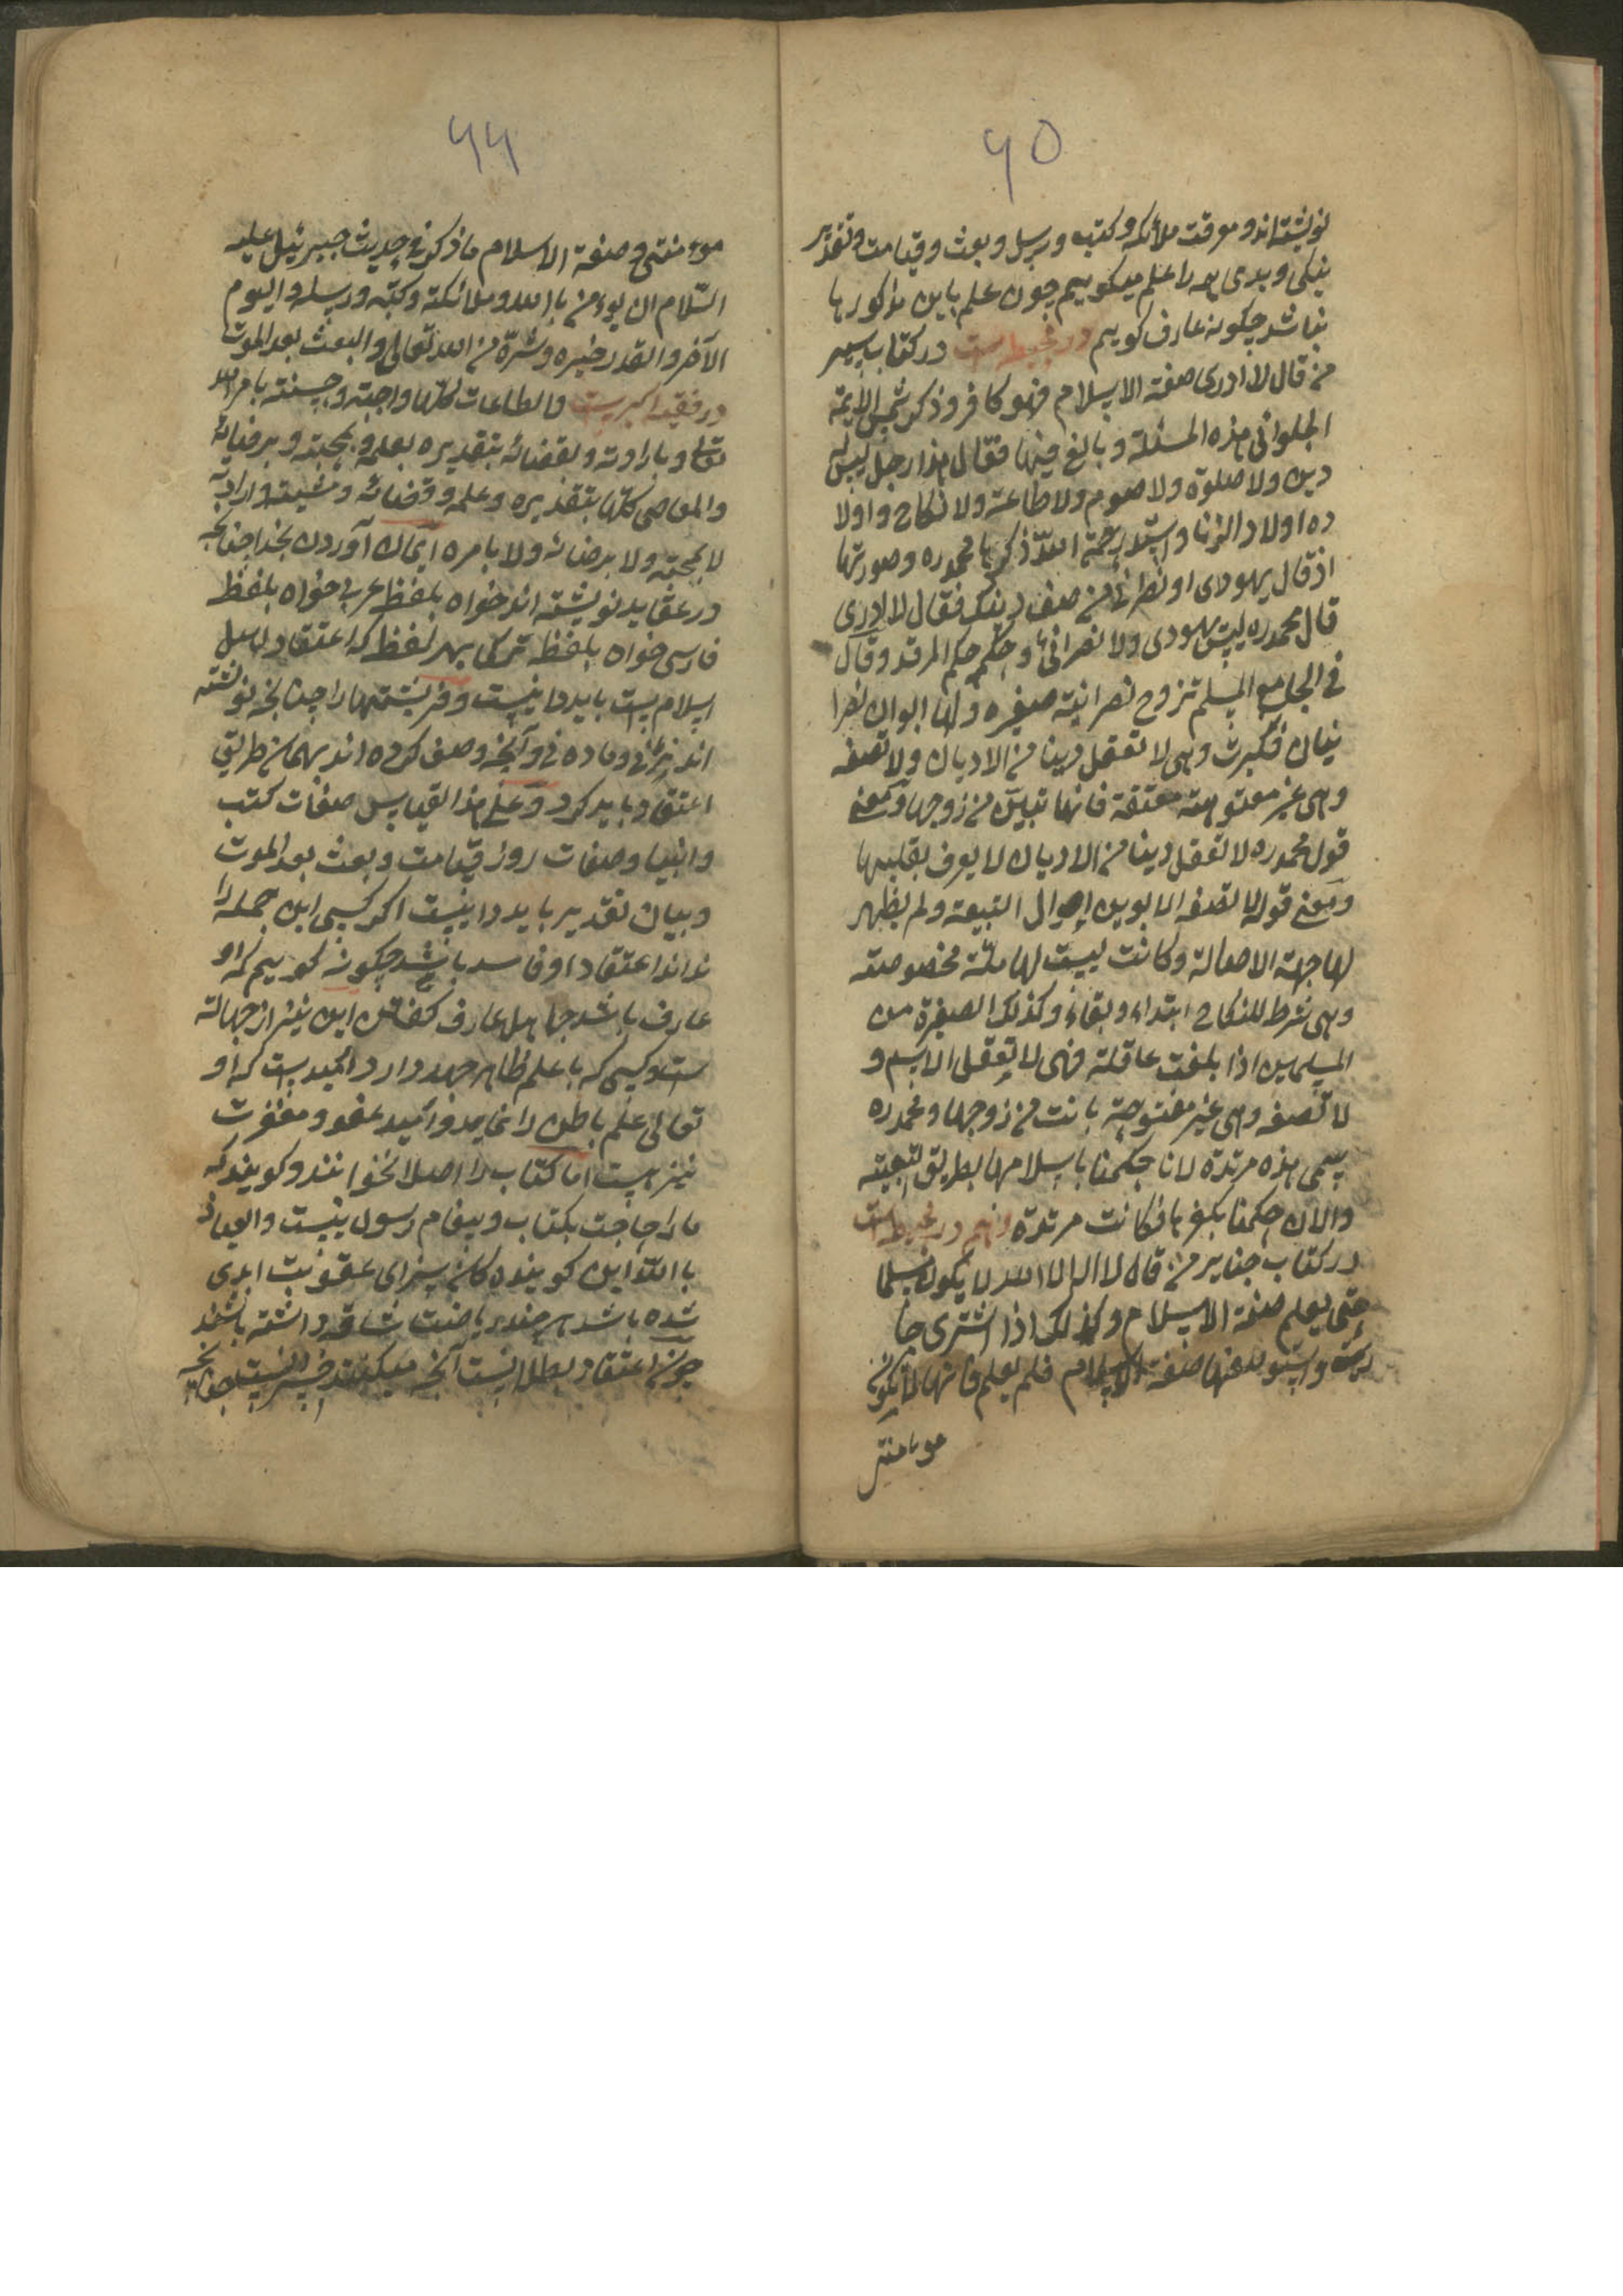 ۶۵
نوشته‌اند و معرفت ملائکه و کتب و رسل و بعث و قیامت و تقدیر
نیکی و بدی همه را علم میکوییم چون علم باین مذکورها
نباشد چکونه عارف کوییم در محیط است در کتاب سیر
من قال لا ادری صفة الاسلام فهو کافر و ذکر شمس الایمة
الحلوانی هذه المسئلة و بالغ فیها فقال هذا رجل لیس له
دین ولا صلوة ولا صوم ولا طاعة ولا نکاح و اولا
ده اولاد الزنا و محمد ره و صورتها
اذ قال یهودی او نصرانی من صف دینک فقال لا ادری
قال محمد ره لیس یهودی ولا نصرانی و حکمه حکم المرتد و قال
فی الجامع المسلم تزوج نصرانیة صغیره و لها ابوان نصرا
نیان فکبرت وهی لا تعقل دینا من الادیان ولا تصفه
وهی غیر معتوهة فانها تبین من زوجها و معنی
قول محمد ره لا تعقل دینا من الادیان لا یعرف بقلبها
و معنی قوله لا تصفه التبیعة ولم یظهر
لها جهة الاصالة و کانت لیست لها ملّة مخصوصة
وهی شرط للنکاح ابتداء و بقاءً و کذلک الصغیرة من
المسلمین اذا بلغت عاقلة فهی لا تعقل الاسم و
لا تصفه وهی غیر معتوهة بانت من زوجها و محمد ره
یسمی هذه مرتدة لانا حکمنا باسلامها بطریق التبعیة
والان حکمنا بکفرها فکانت مرتدة و هم در محیط است
در کتاب جنایر من قال لا اله الا الله لا یکون مسلما
حتی یعلم صفة الاسلام و کذلک اذا اشتری جا
ریة صفة الاسلام فلم یعلم فانها لا تکون
مومنة
۶۶
مومنة و صفة الاسلام ما ذکر فی حدیث جبرئیل علیه
السّلام ان یومن بالله و ملائکته و کتبه و رسله و الیوم
الآخر و القدر خیره و شرّه من الله تعالی و البعث بعد الموت
در فقه اکبر است والطاعات کلها واجبة و حسنة بامر الله
تعالی و بارادته و بقضائه بتقدیره بعلمه و بمحبته و برضائه
والمعاصی کلها بتقدیره و علمه و قضائه و مشیته و ارادته
لا بمحبته ولا برضائه ولا بامره ایمان آوردن بخدا چنانچه
در عقاید نوشته اند خواه بلفظ عربی خواه بلفظ
فارسی خواه بلفظ ترکی بهر لفظ که اعتقاد اهل
اسلام است باید دانست و فرشتها را چنانچه نوشته
اند نرانی و ماده نی و آنچه وصف کرده اند بهمان طریق
اعتقاد باید کرد و علی هذا القیاس صفات کتب
و انبیا و صفات روز قیامت و بعث بعد الموت
و بیان تقدیر باید دانست اکر کسی این جمله را
نداند اعتقاد او فاسد باشد چکونه کوییم که او
عارف باشد جاهل عارف کفتن این نیز از جهالت
است و کسی که با علم ظاهر جهد دارد امید است که او
تعالی علم باطن را نماید و امید عفو و مغفرت
نیز هست اما کتاب را اصلا نخوانند و کویند که
ما را حاجت بکتاب و پیغام رسول نیست والعیاذ
بالله این کوینده کان سزای عقوبت ابدی
شده باشد هر چند ریاضت شاقه داشته باشند
چون اعتقاد باطل است آنچه میکنند خیر نیست چنانچه